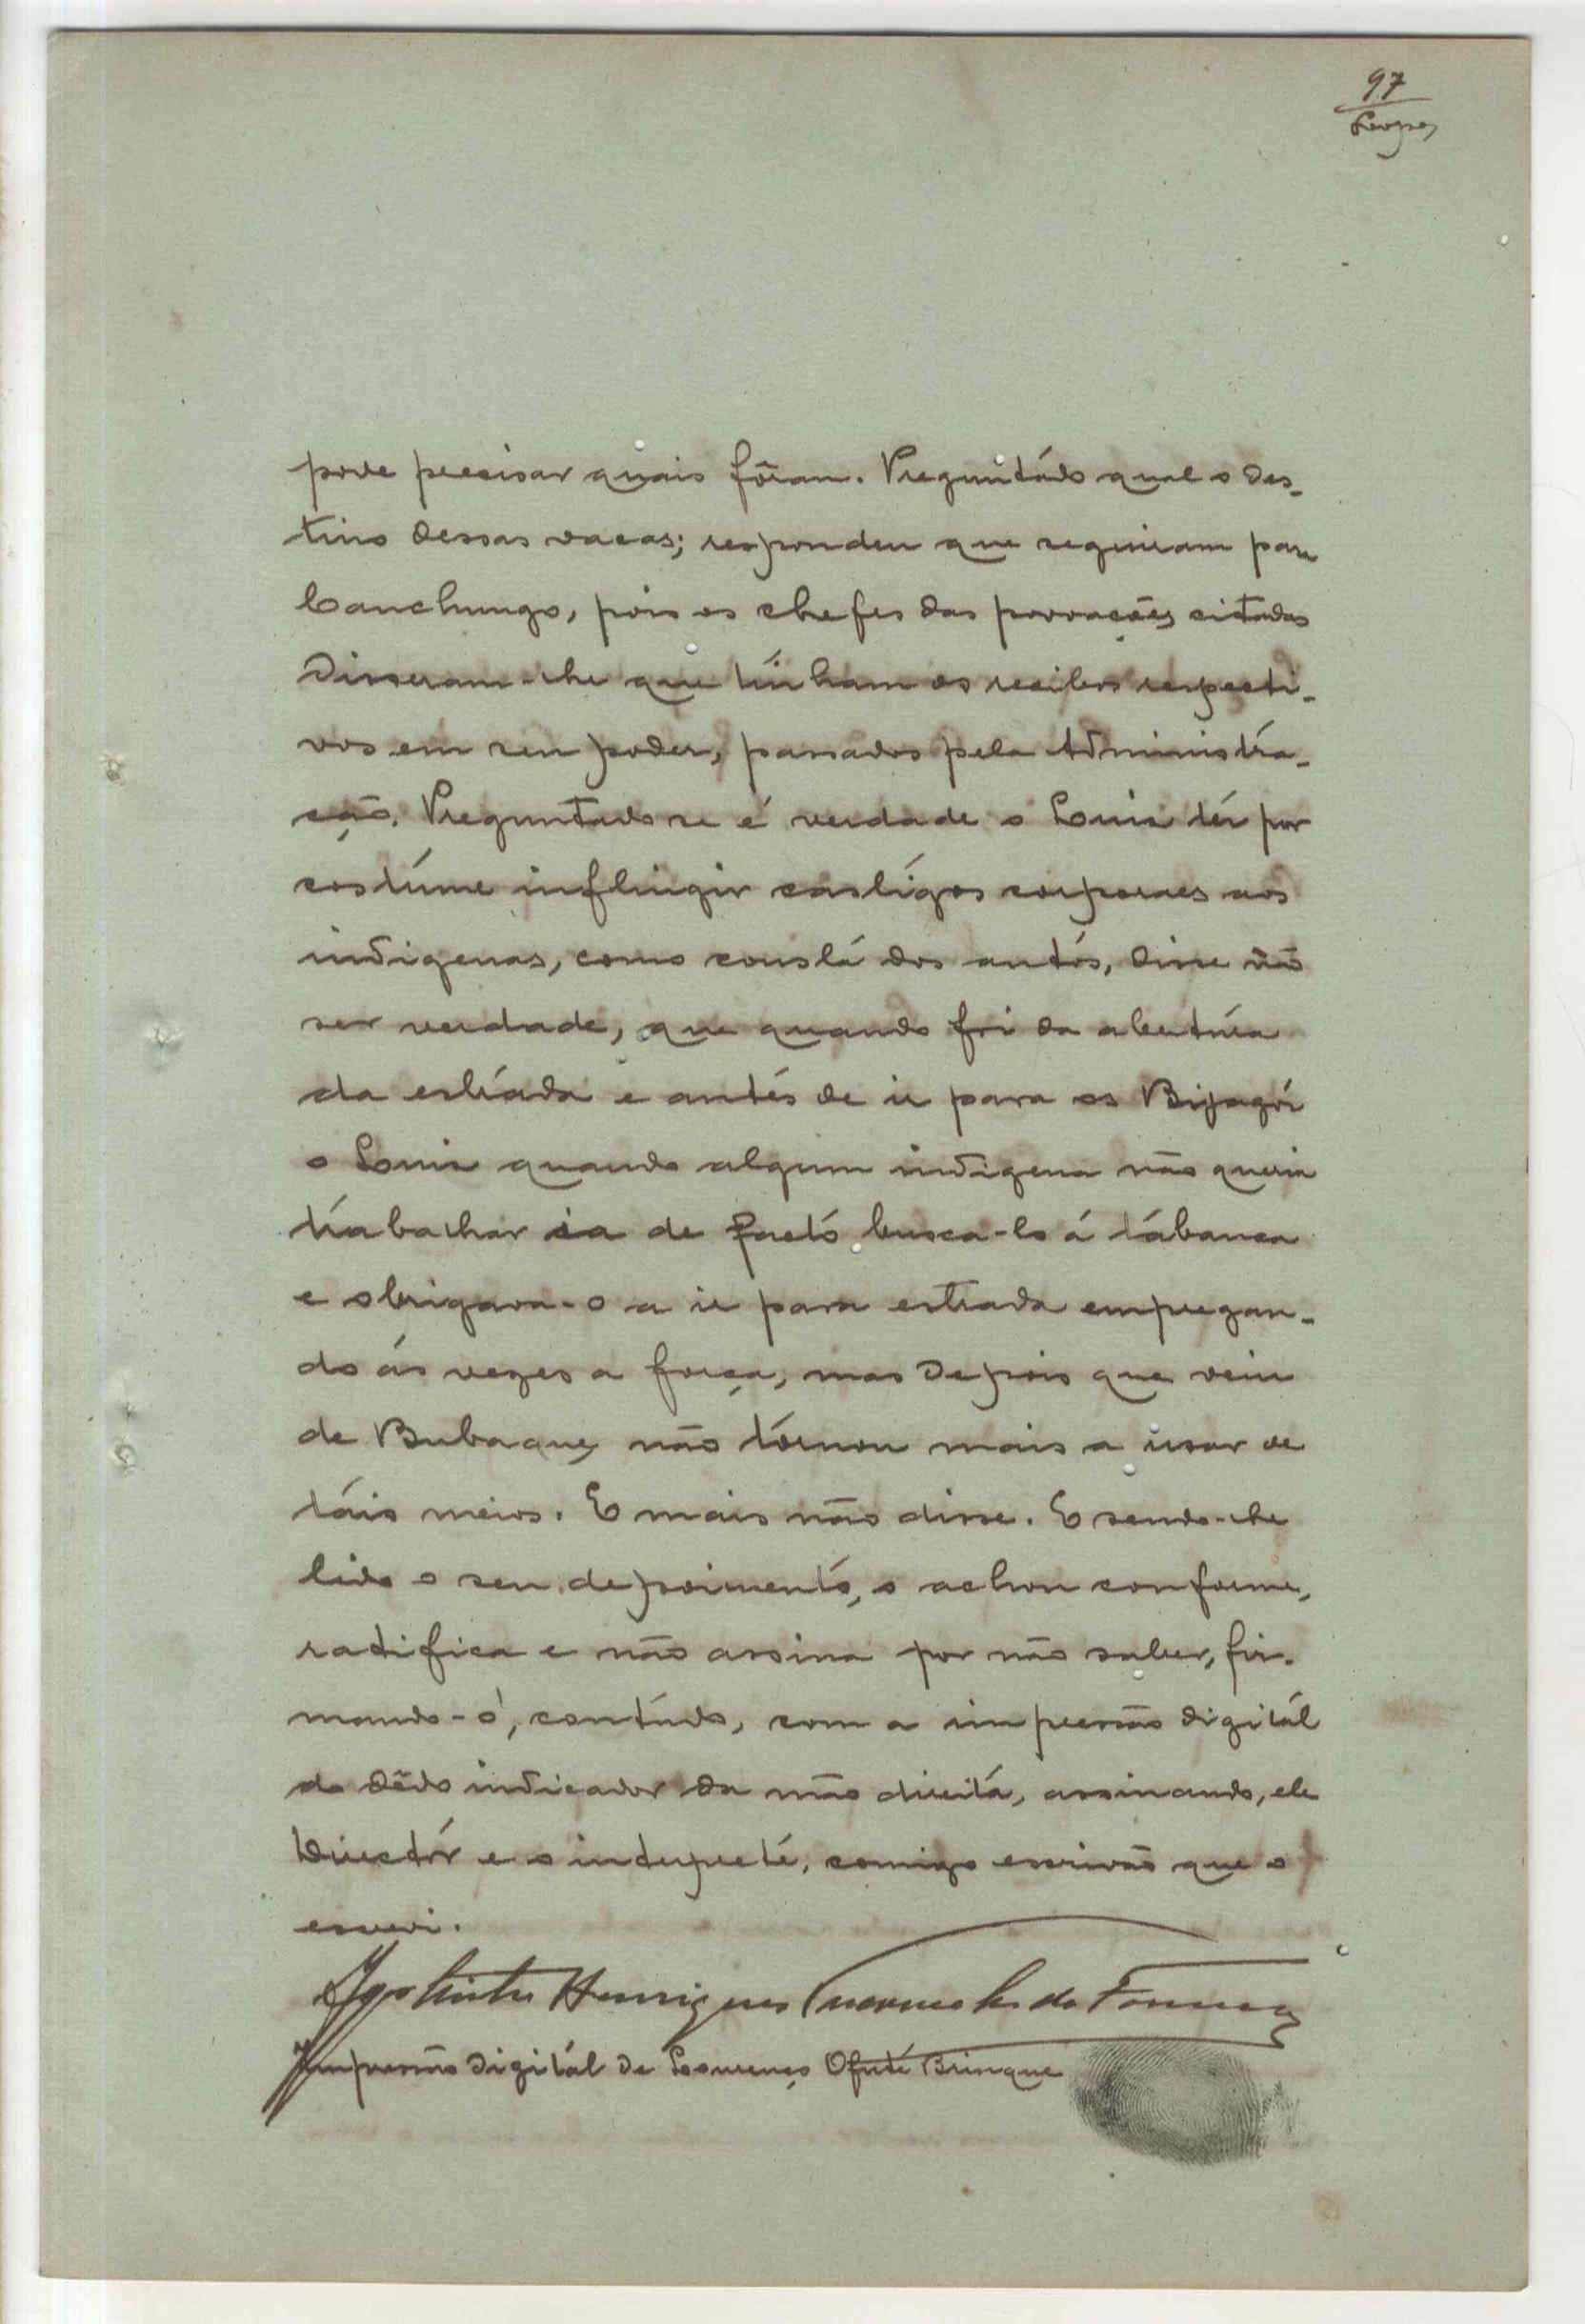 97
Lopes
pode precisar quais fôram. Preguntádo qual o des-
tino dessas vacas; respondeu que seguiram para
Canchungo, pois os chefes das povoações citadas
disseram-lhe que tinham os recibos respecti-
vos em seu poder, passados pela Administra-
ção. Preguntado se é verdade o Luis tér por
costúme inflingir castígos corporaes aos
indigenas, como constá dos autós, disse não
ser verdade, que quando foi da abertúra
da estráda e antés de ir para os Bijagós
o Luis quando algum indigena não queria
trabalhar ia de factó busca-lo á tábanca
e obrigava-o a ir para estrada empregan-
do ás vezes a força, mas depois que veiu
de Bubaque, não tórnou mais a usar de
táis meios. E mais não disse. E sendo-lhe
lido o seu depoimentó, o achou conforme,
ratifica e não assina por não saber, fir-
mando-o, contúdo, com a impressão digitál
do dêdo indicador da mão direitá, assinando, ele
Directór e o interpreté, comigo escrivão que o
escrevi.
Agostinho Henriques da Fonseca
Impressão digitál de Lourenço Ofuté Brinque